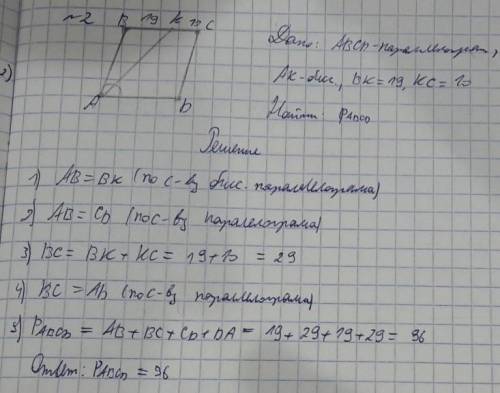 ~2 B 19 K 10 C
Дано: ABCD-параллелограм,
2)
AK-бис., BK=19, KC=10
A D
Найти: PABCD
Решение
1) AB=BK (по с-ву бис. параллелограма)
2) AB=CD (по с-ву паралелограма)
3) BC= BK+KC= 19+10 = 29
4) BC = AD (по с-ву параллелограма)
5) PABCD = AB+BC+CD+DA= 19+29+19+29= 96
Ответ: PABCD=96